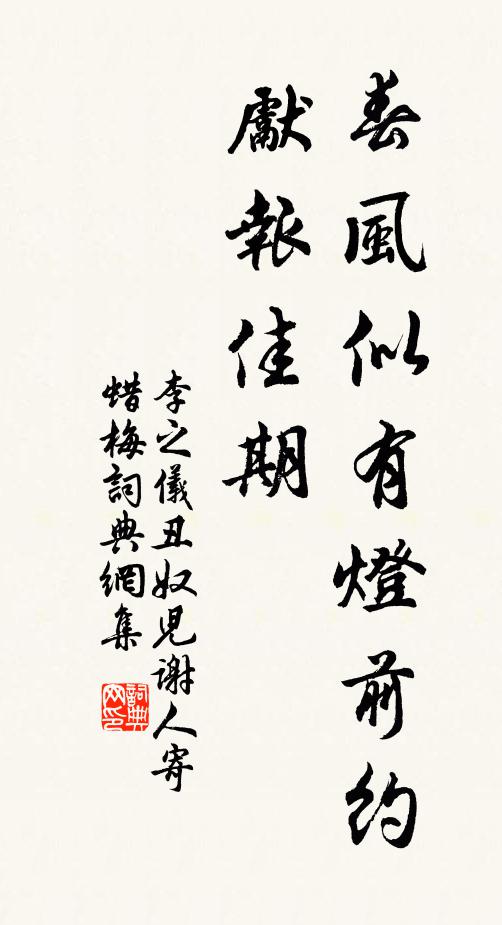 春風似有燈前約
獻報佳期
李之儀丑奴兒謝人寄
蜡梅詞典網集
詞典网印